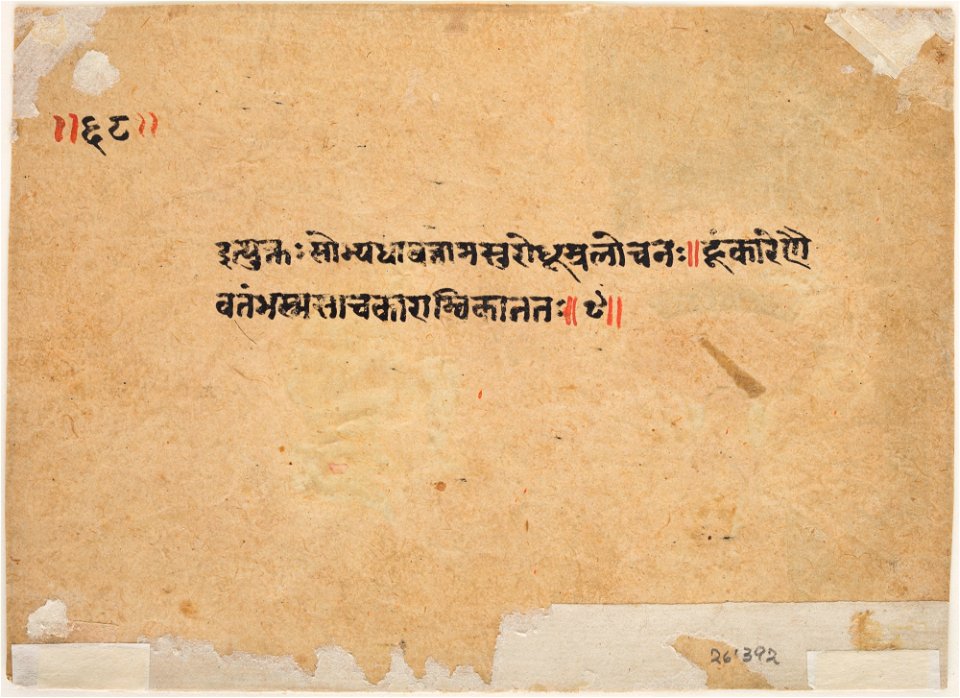 ॥६८॥
इत्युक्तःसोभ्यधावत्तामसुरोधूम्रलोचनः॥हूंकारेणै
वतंभस्मसाचकाराम्बिकाततः॥९॥
26.392